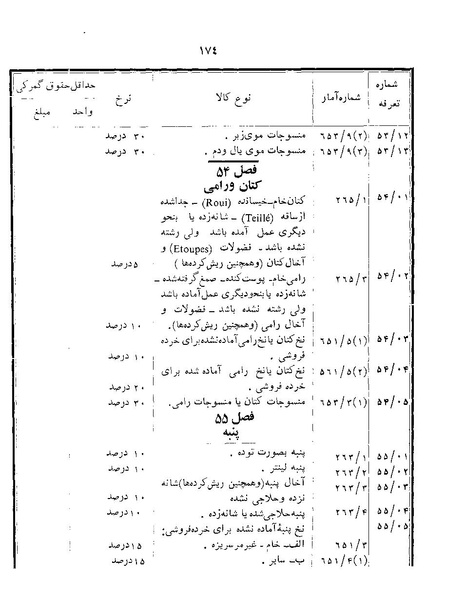 ۱۷۴
شماره تعرفه | شماره‌آمار | نوع کالا | نرخ | حداقل حقوق گمرکی
واحد | مبلغ
۵۳/۱۲ | ۶۵۳/۹(۲) | منسوجات موی‌زبر . | ۳۰ درصد
۵۳/۱۳ | ۶۵۳/۹(۳) | منسوجات موی یال ودم . | ۳۰ درصد
فصل ۵۴
کتان ورامی
۵۴/۰۱ | ۲۶۵/۱ | کتان‌خام–خیسانده (Roui) – جداشده
ازساقه (Teillé) – شانه‌زده یا بنحو
دیگری عمل آمده باشد ولی رشته
نشده باشد – فضولات (Etoupes) و
آخال‌کتان (وهمچنین ریش‌کرده‌ها) | ۵درصد
۵۴/۰۲ | ۲۶۵/۳ | رامی‌خام– پوست‌کنده– صمغ‌گرفته‌شده–
شانه‌زده یابنحودیگری عمل‌آمده‌باشد
ولی رشته نشده باشد – فضولات و
آخال رامی (وهمچنین ریش‌کرده‌ها). | ۱۰ درصد
۵۴/۰۳ | ۶۵۱/۵(۱) | نخ‌کتان یانخ‌رامی‌آماده‌نشده‌برای‌خرده
فروشی . | ۱۰ درصد
۵۴/۰۴ | ۵۶۱/۵(۲) | نخ‌کتان یانخ رامی آماده شده برای
خرده فروشی . | ۲۰ درصد
۵۴/۰۵ | ۶۵۳/۳(۱) | منسوجات کتان یا منسوجات رامی. | ۳۰ درصد
فصل ۵۵
پنبه
۵۵/۰۱ | ۲۶۳/۱ | پنبه بصورت توده . | ۱۰ درصد
۵۵/۰۲ | ۲۶۳/۲ | پنبه لینتر . | ۱۰ درصد
۵۵/۰۳ | ۲۶۳/۳ | آخال پنبه(وهمچنین ریش‌کرده‌ها)شانه
نزده وحلاجی نشده | ۱۰ درصد
۵۵/۰۴ | ۲۶۳/۴ | پنبه‌حلاجی‌شده یا شانه‌زده . | ۱۰ درصد
۵۵/۰۵ | نخ پنبهٔ‌آماده نشده برای خرده‌فروشی:
۶۵۱/۳ | الف– خام – غیرمرسریزه . | ۱۵درصد
۶۵۱/۴(۱) | ب– سایر . | ۱۵درصد